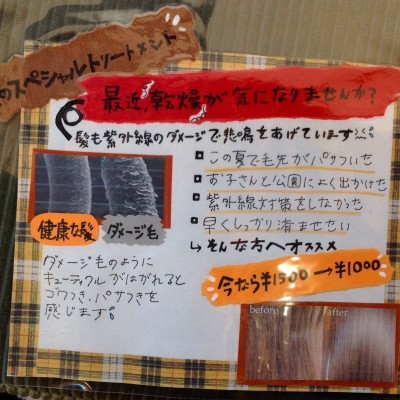 のスペシャルトリートメント
最近、乾燥が気になりませんか?
髪も紫外線のダメージで悲鳴をあげています
この夏で毛先がパサついた
お子さんと公園によく出かけた
紫外線対策をしなかった
早くしっかり済ませたい
↳そんな方へオススメ
健康な髪
ダメージ毛
ダメージ毛のように
キューティクルがはがれると
ゴワつき、パサつきを
感じます
今なら¥1500→¥1000
before
after